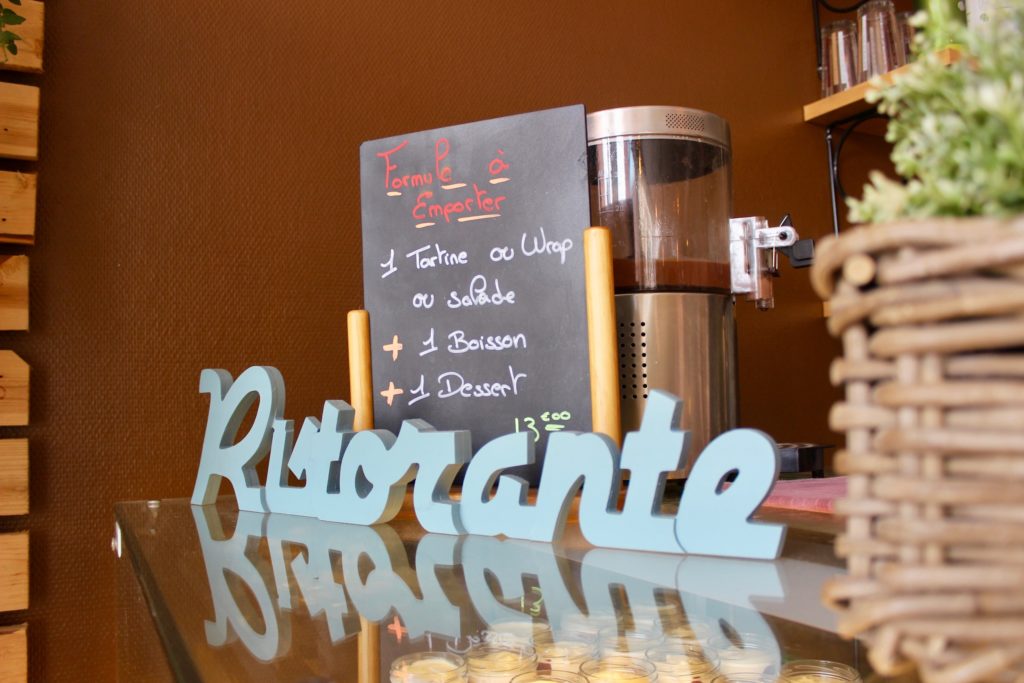 Formule à
Emporter
1 Tartine ou Wrap
ou salade
+ 1 Boisson
+ 1 Dessert
13 €00
Ristorante